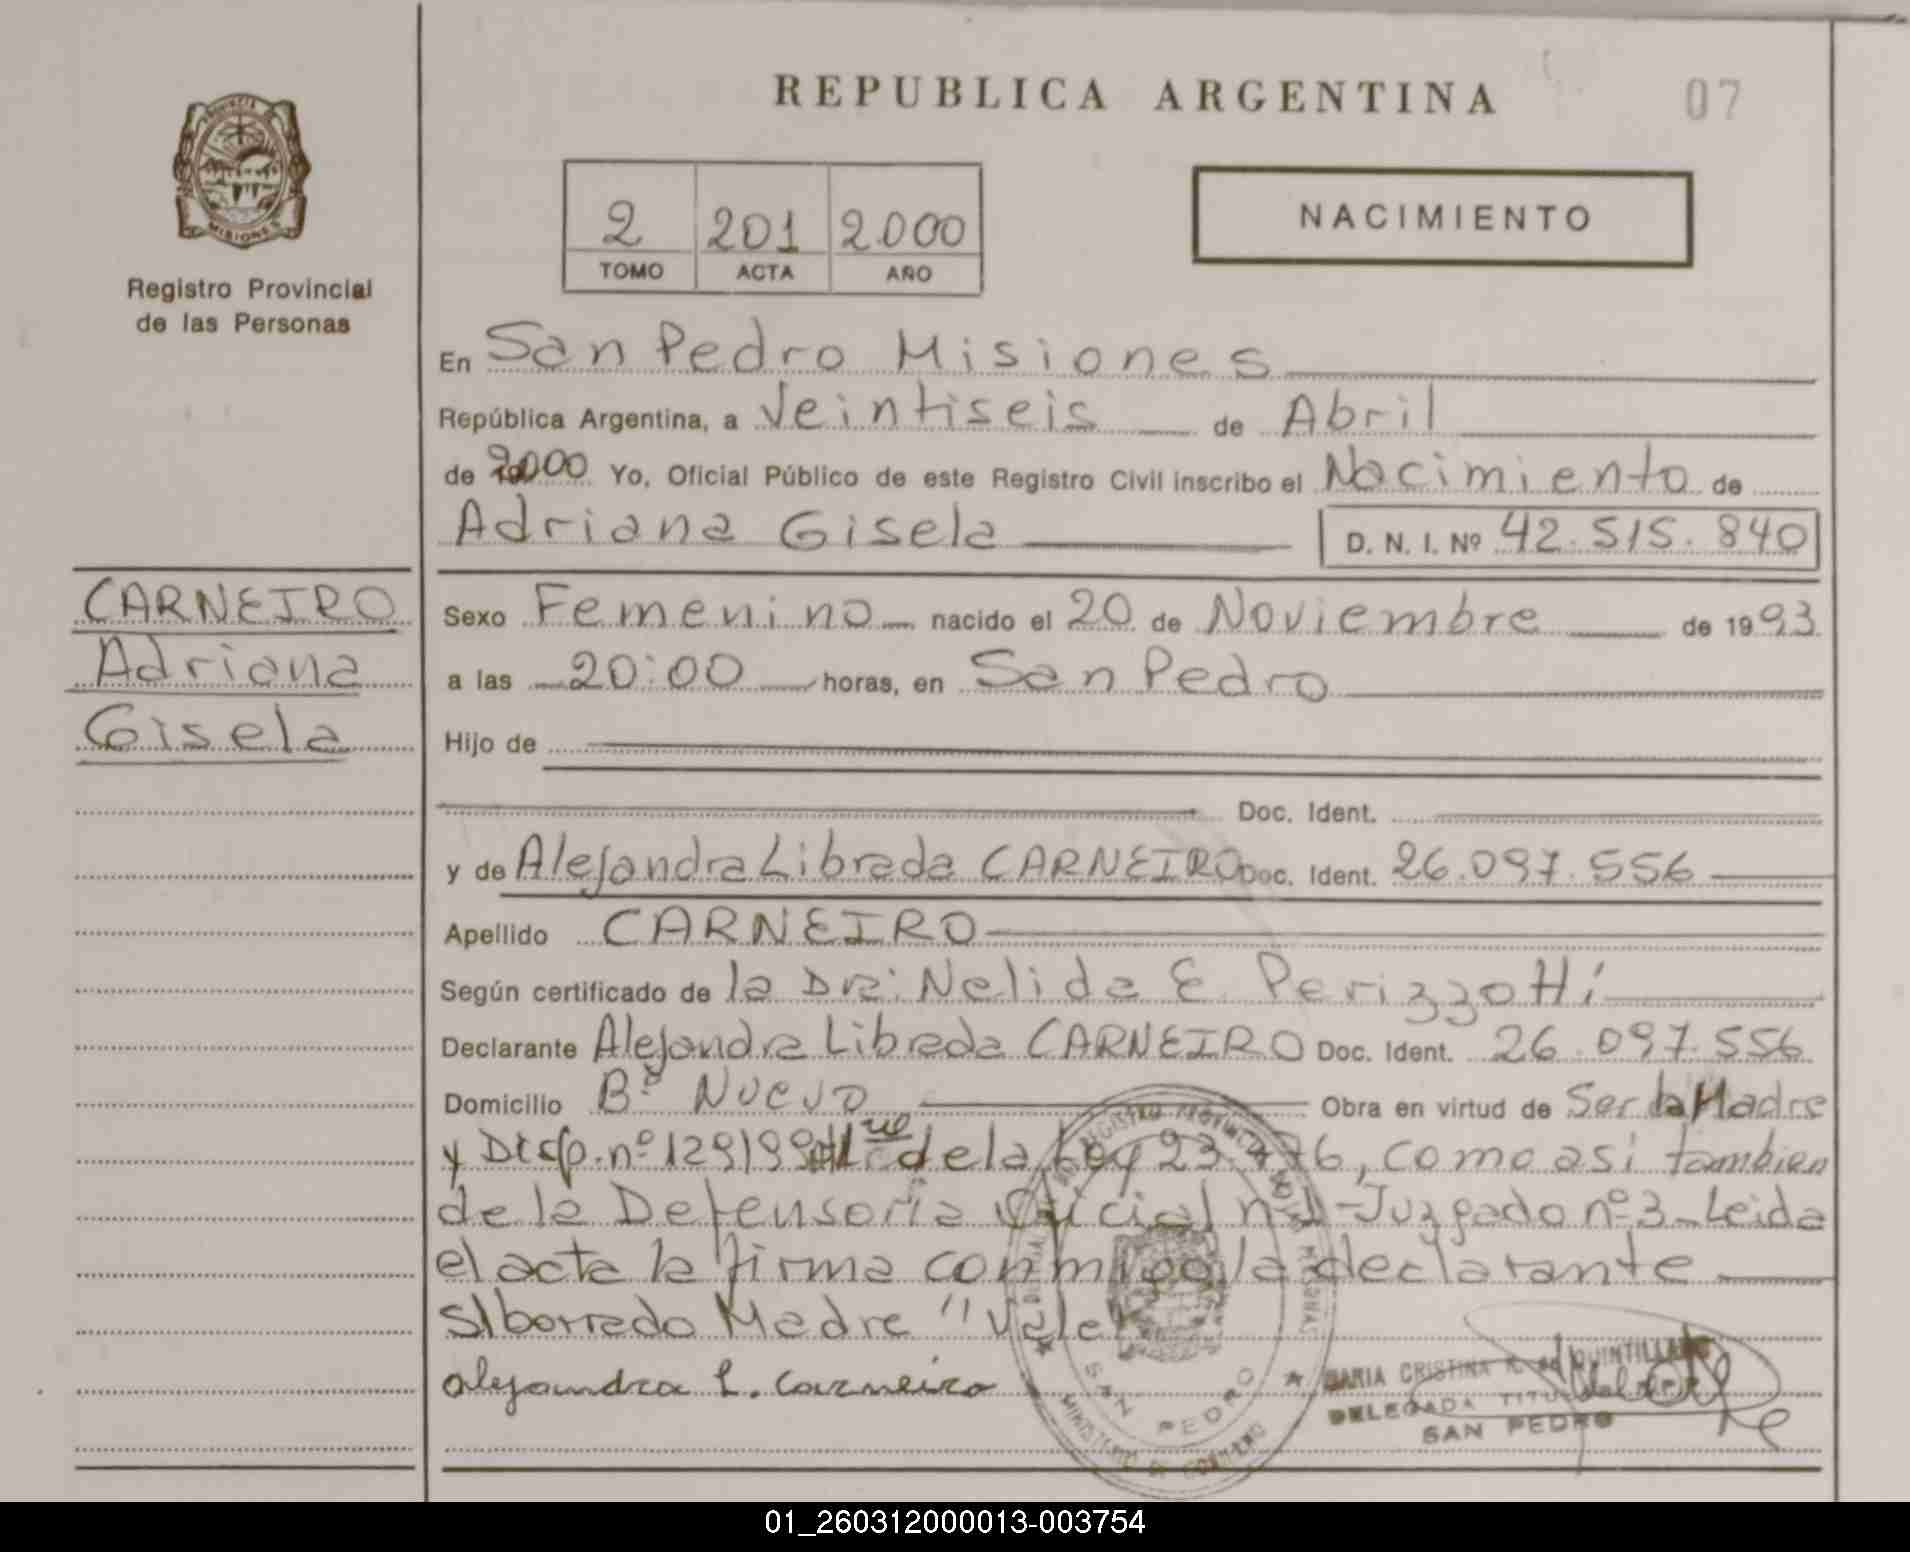 REPUBLICA ARGENTINA
07
PROVINCIA
MISIONES
Registro Provincial
de las Personas
2 201 2000
TOMO ACTA AÑO
NACIMIENTO
En San Pedro Misiones
República Argentina, a Veintiseis de Abril
de 2000 Yo, Oficial Público de este Registro Civil inscribo el Nacimiento de
Adriana Gisela D. N. I. Nº 42.515.840
CARNEIRO
Adriana
Gisela
Sexo Femenino nacido el 20 de Noviembre de 1993
a las 20:00 horas, en San Pedro
Hijo de
Doc. Ident.
y de Alejandra Librada CARNEIRO Doc. Ident. 26.097.556
Apellido CARNEIRO
Según certificado de la Dra: Nelida E. Perizzotti
Declarante Alejandra Librada CARNEIRO Doc. Ident. 26.097.556
Domicilio Bº Nuevo Obra en virtud de Ser la Madre
y Disp. nº 129/99 de la Ley 23.776, como asi tambien
de la Defensoria Oficial nº1-Juzgado nº3-Leida
el acta la firma conmigo la declarante
S/borrado Madre "Vale"
Alejandra L. Carneiro
REGISTRO PROVINCIAL DE LAS PERSONAS
SAN PEDRO
MINISTERIO DE GOBIERNO
MARIA CRISTINA R. de QUINTILLAN
DELEGADA TITULAR
SAN PEDRO
01_260312000013-003754